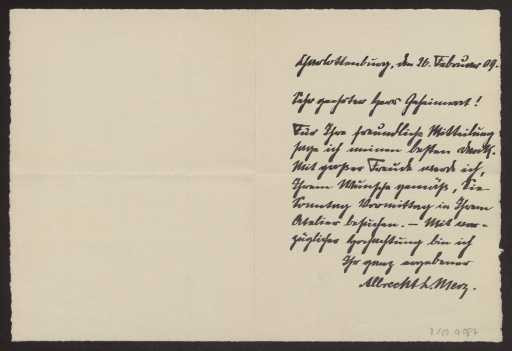 Charlottenburg, den 26. Februar 09.
Sehr geehrter Herr Geheimrat!
Für Ihre freundliche Mitteilung
sage ich meinen besten Dank.
Mit großer Freude werde ich,
Ihrem Wunsche gemäß, Sie
Sonntag Vormittag in Ihrem
Atelier besuchen. – Mit vor-
züglicher Hochachtung bin ich
Ihr ganz ergebener
Albrecht L. Merz.